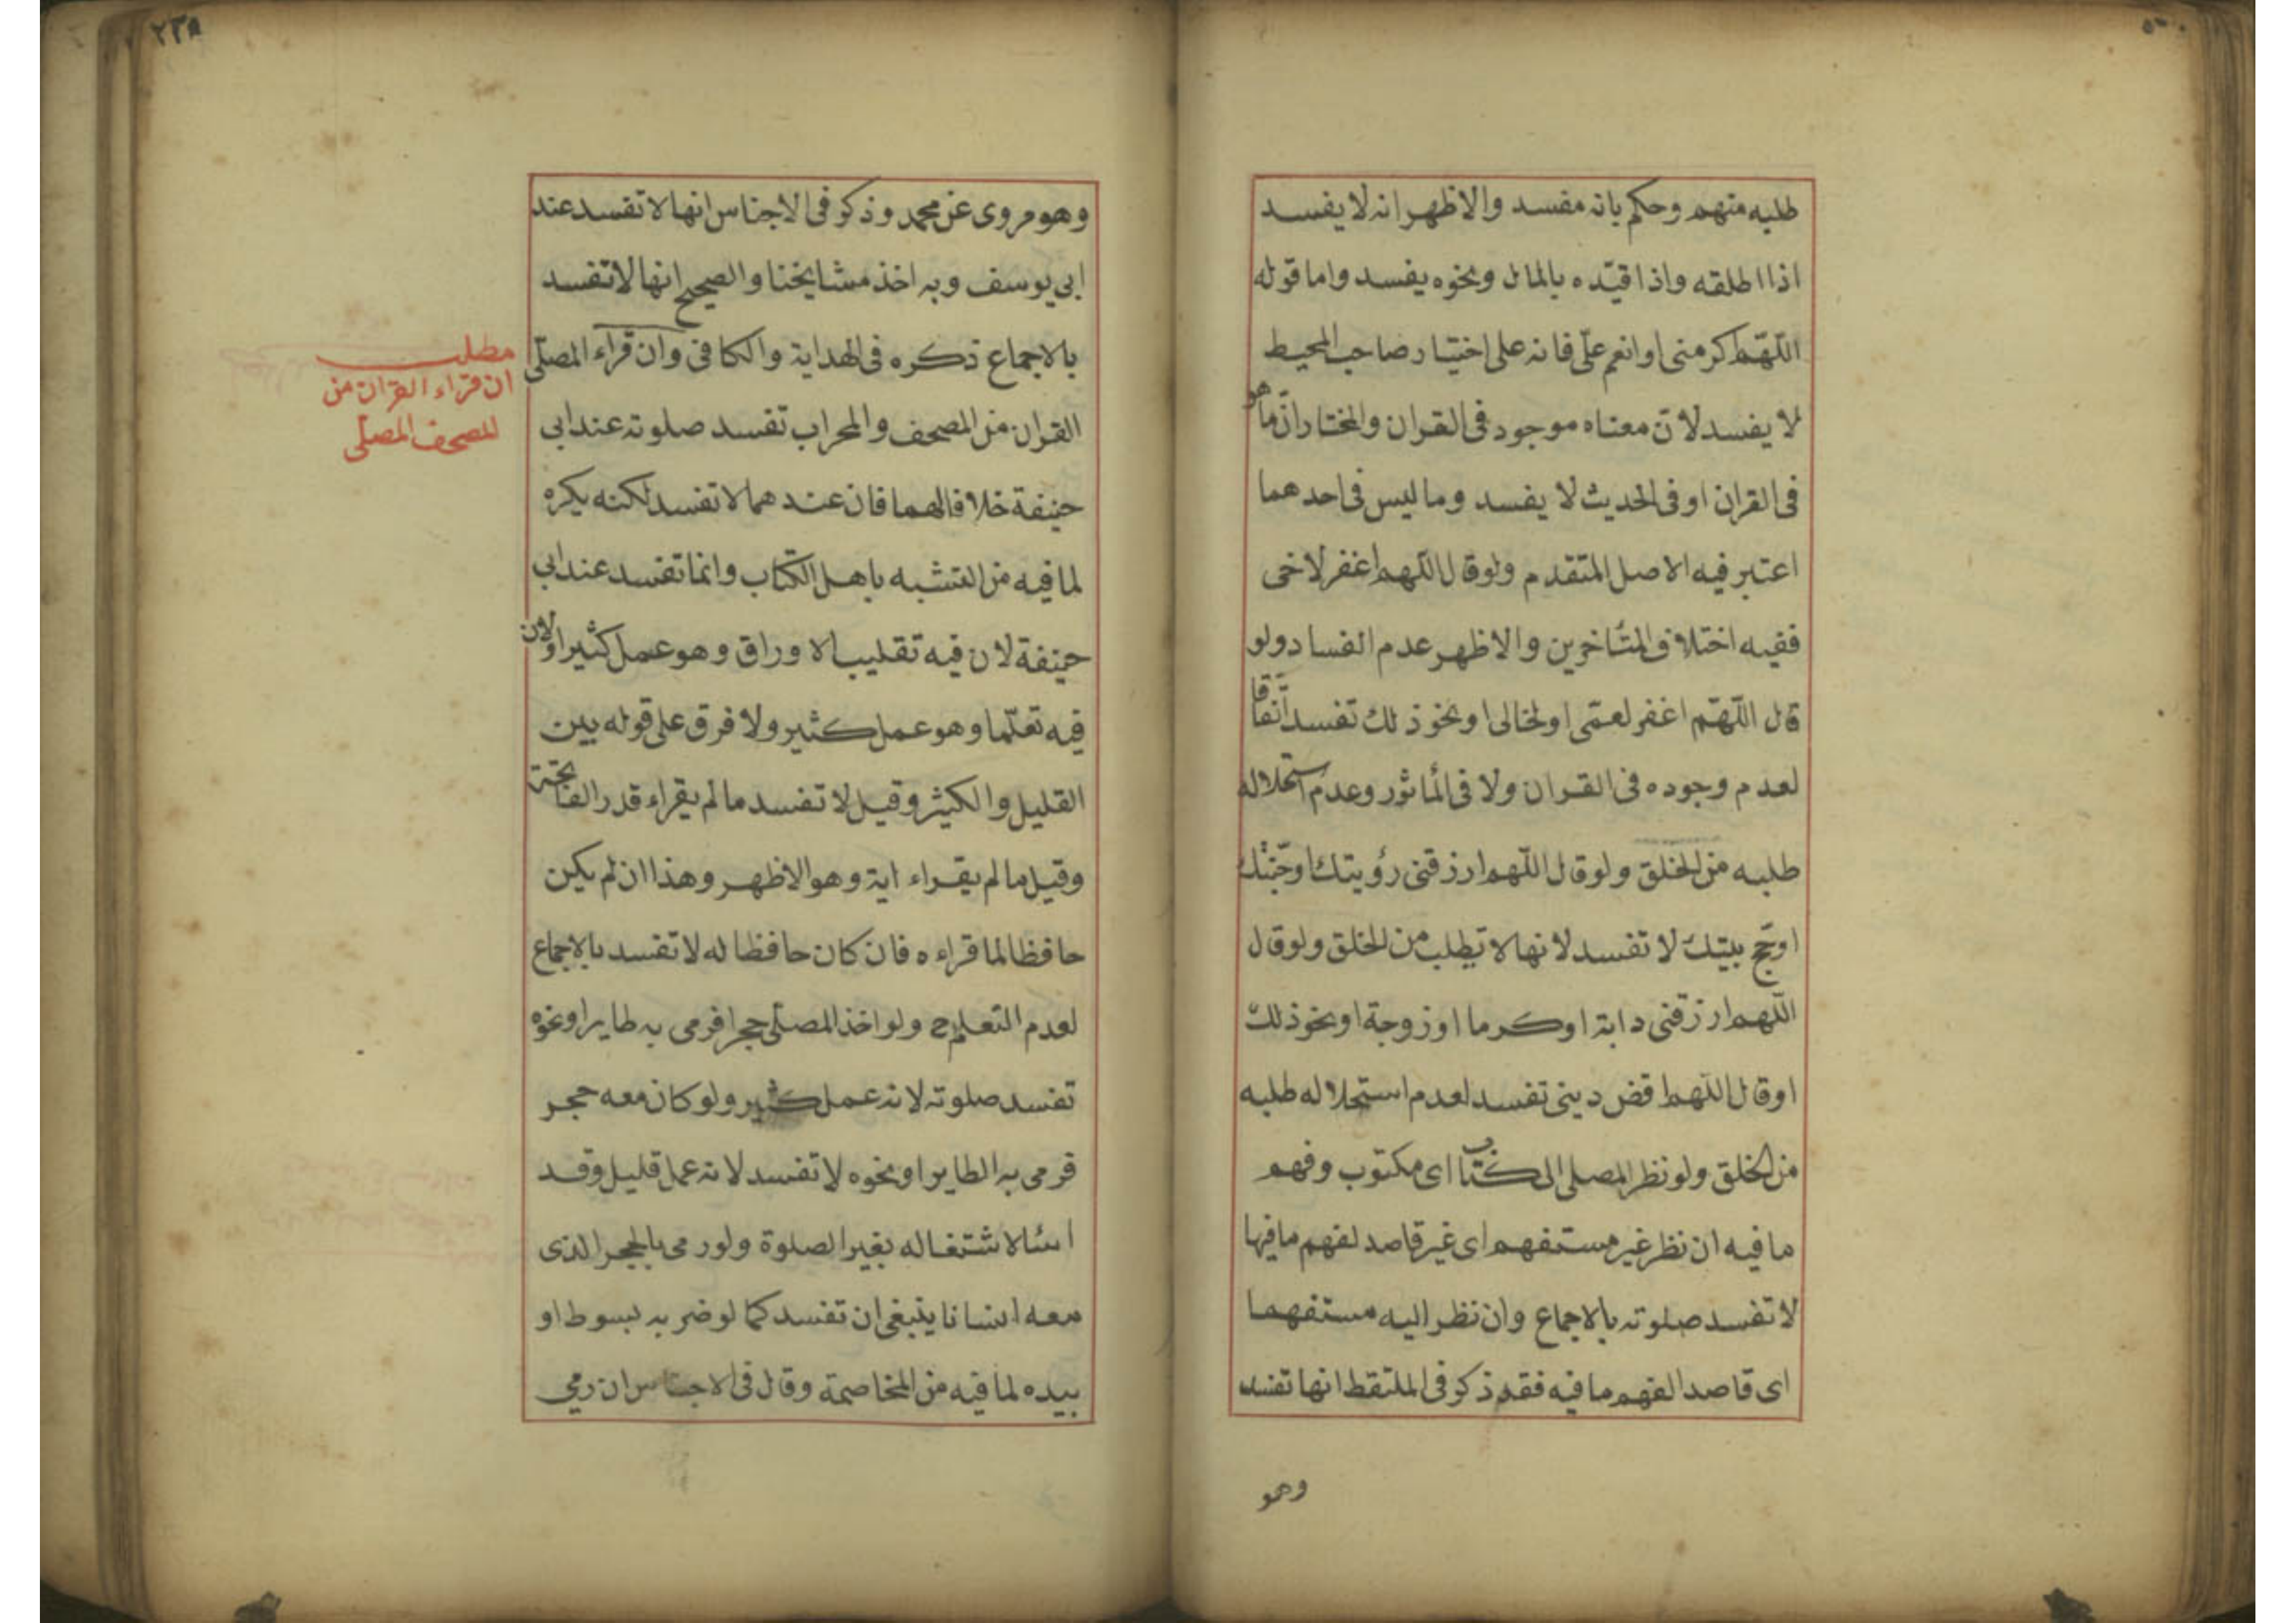 طلبه منهم وحكم بانه مفسد والاظهر انه لا يفسد
اذا اطلقه واذا قيّده بالمال ونحوه يفسد واما قوله
اللّهمّ اكرمنى او انعم علىّ فانه على اختيار صاحب المحيط
لا يفسد لانّ معناه موجود فى القران والمختار انّ ما هو
فى القران او فى الحديث لا يفسد وما ليس فى احدهما
اعتبر فيه الاصل المتقدم ولو قال اللّهم اغفر لاخى
ففيه اختلاف المتأخرين والاظهر عدم الفساد ولو
قال اللّهمّ اغفر لعمّى او لخالى او نحو ذلك تفسد اتّفاقا
لعدم وجوده فى القران ولا فى المأثور وعدم استحلاله
طلبه من الخلق ولو قال اللّهم ارزقنى رؤيتك او جنّتك
او حجّ بيتك لا تفسد لانها لا تطلب من الخلق ولو قال
اللّهم ارزقنى دابة او كرما او زوجة او نحو ذلك
او قال اللّهم اقض دينى تفسد لعدم استحلاله طلبه
من الخلق ولو نظر المصلى الى كتاب اى مكتوب وفهم
ما فيه ان نظر غير مستفهم اى غير قاصد لفهم ما فيها
لا تفسد صلوته بالاجماع وان نظر اليه مستفهما
اى قاصدا لفهم ما فيه فقد ذكر فى الملتقط انها تفسد
وهو
٢٣٥
وهو مروى عن محمد وذكر فى الاجناس انها لا تفسد عند
ابى يوسف وبه اخذ مشايخنا والصحيح انها لا تفسد
بالاجماع ذكره فى الهداية والكافى وان قراء المصلّى
القران من المصحف والمحراب تفسد صلوته عند ابى
حنيفة خلافا لهما فان عندهما لا تفسد لكنه يكره
لما فيه من التشبه باهل الكتاب وانما تفسد عند ابى
حنيفة لان فيه تقليب الاوراق وهو عمل كثير او لان
فيه تعلّما وهو عمل كثير ولا فرق على قوله بين
القليل والكثير وقيل لا تفسد ما لم يقراء قدر الفاتحة
وقيل ما لم يقراء اية وهو الاظهر وهذا ان لم يكن
حافظا لما قراءه فان كان حافظا له لا تفسد بالاجماع
لعدم التعلم ح ولو اخذ المصلّى حجرا فرمى به طايرا ونحوه
تفسد صلوته لانه عمل كثير ولو كان معه حجر
فرمى به الطاير او نحوه لا تفسد لانه عمل قليل وقد
اسئا لاشتغاله بغير الصلوة ولو رمى بالحجر الذى
معه انسانا ينبغى ان تفسد كما لو ضربه بسوط او
بيده لما فيه من المخاصمة وقال فى الاجناس ان رمى
مطلب
ان قراء القران من
المصحف المصلّى